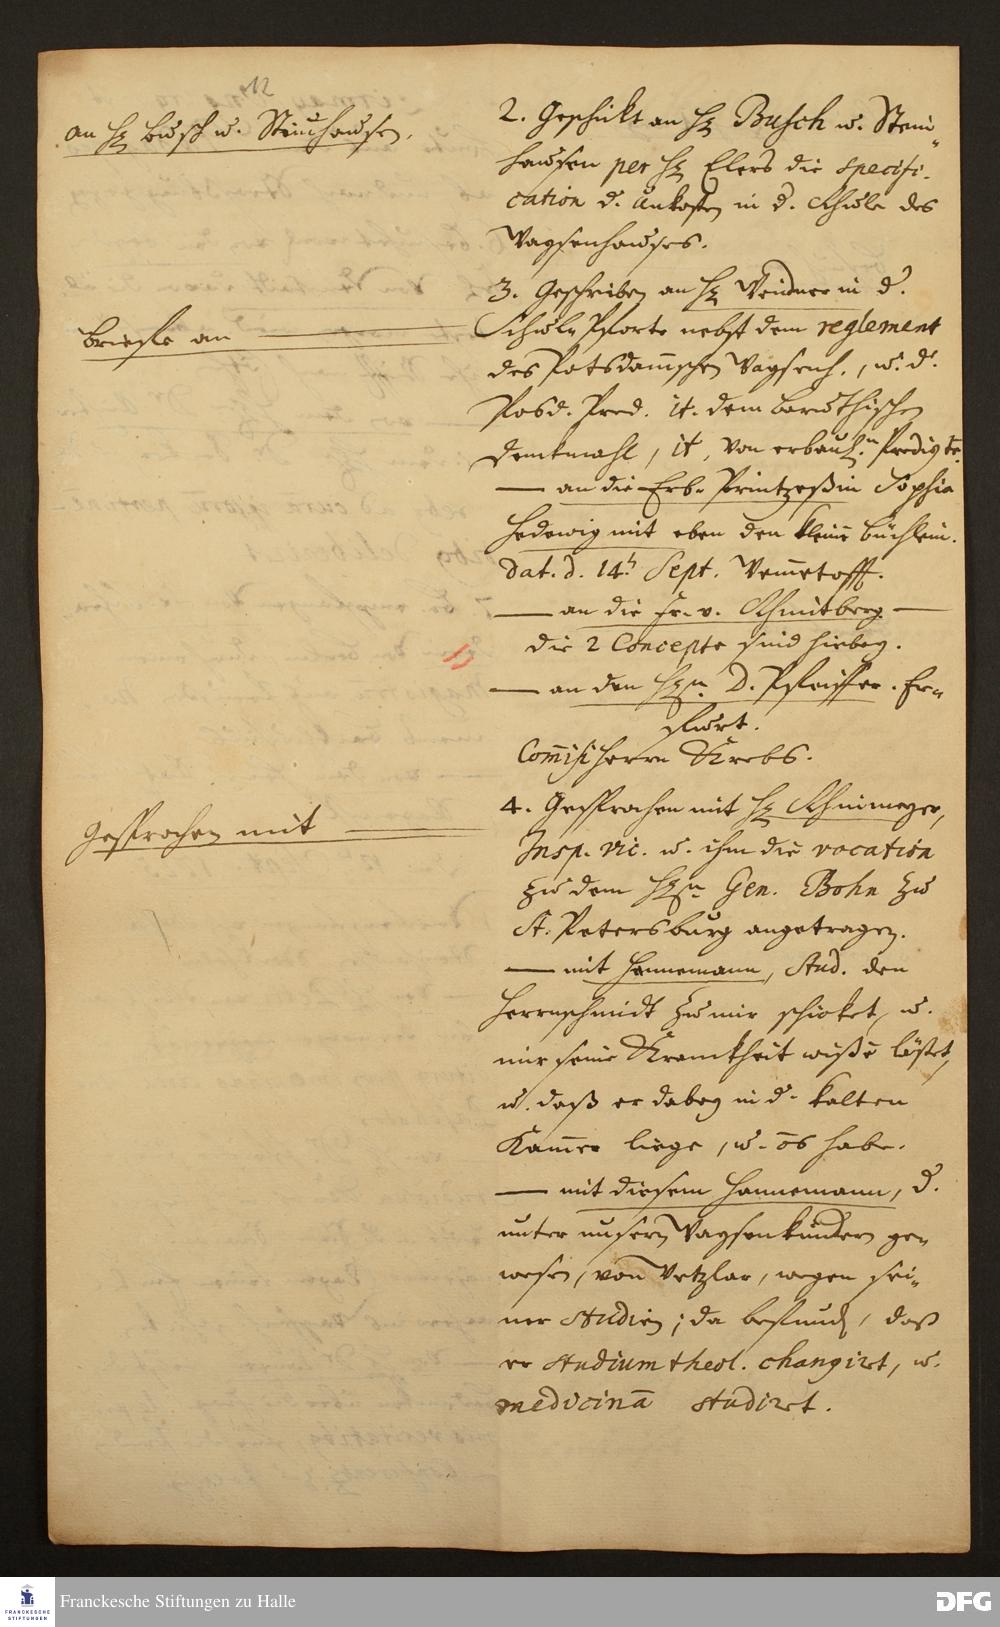 12
an H. Busch u. Steinhausen.
2. Geschickt an H. Busch u. Stein-
hausen per H. Elers die specifi-
cation d. Unkosten in d. Schule des
Waysenhauses.
3. Geschrieben an H. Weidner in d.
Briefe an
Schule Pforte nebst dem reglement
des Potsdamschen Waysenh., u. d.
Posd. Pred. it. dem baruthischen
denkmahl, it, von erbaul.n Predigte.
— an die Erb. Printzeßin Sophia
Hedewig mit eben den kleine büchlein.
dat. d. 14.h Sept. Vemetofft.
— an die Fr. v. Schmitberg —
die 2 Concepte sind hiebey.
— an den Hn. D. Pfeiffer. Er-
furt.
Herrn Krebs.
Gesprochen mit
4. Gesprochen mit H. Schinmeyer,
Insp. vic. u. ihm die vocation
zu dem Hn Gen. Bohn zu
St. Petersburg angetragen.
— mit Hannemann, Stud. den
Herrnschmidt zu mir schicket, u.
mir seine Kranckheit wißē läßet,
u. daß er dabey in d. kalten
Kamer liege, u. ōs habe.
— mit diesem Hannemann, d.
unter unsern Waysenkindern ge-
wesen, von Wetzlar, wegen sei-
ner Studien; da befund, daß
er studium theol. changirt, u.
medicinā studirt.
Franckesche Stiftungen zu Halle
FRANCKESCHE
STIFTUNGEN
DFG